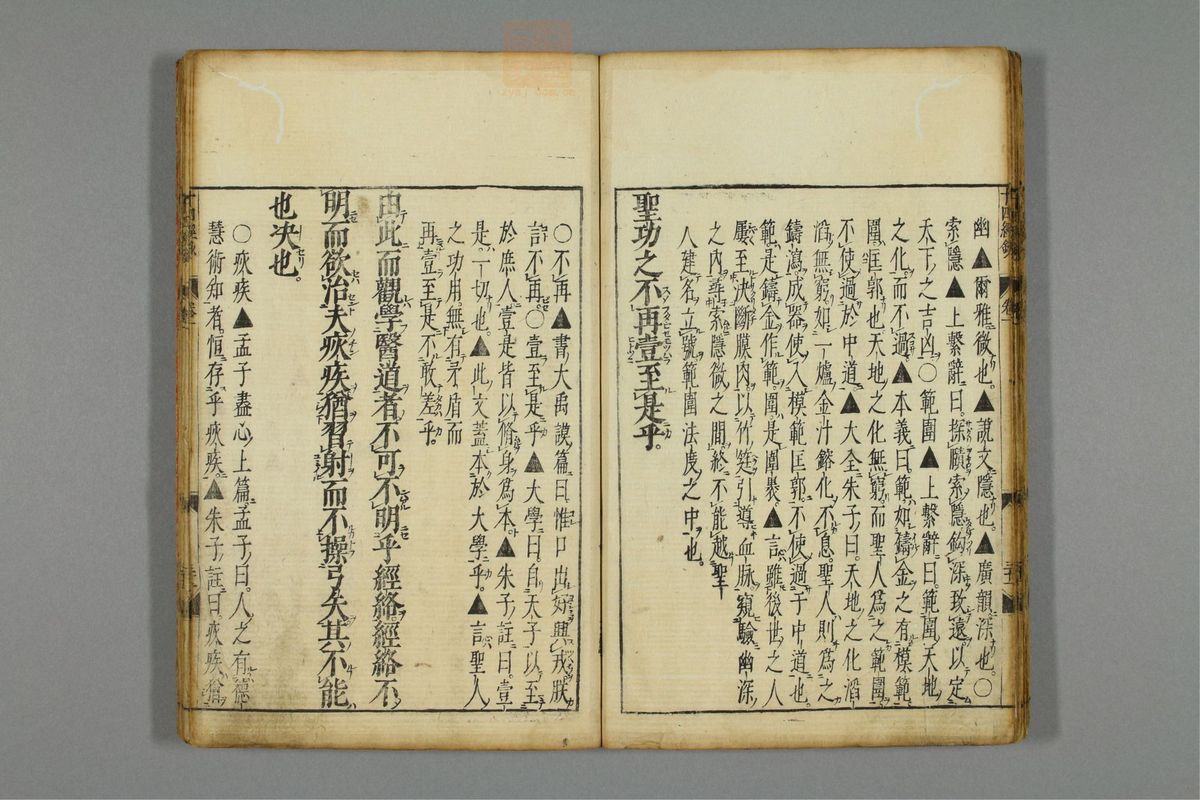 幽▲爾雅微也。▲說文隱也。▲廣韻深也。○
索隱▲上繫辭曰。探賾索隱鈎深致遠以定
天下之吉凶○範圍▲上繫辭曰。範圍天地
之化而不過▲本義曰範如鑄金之有模範
圍匡郭也天地之化無窮而聖人爲之範圍
不使過於中道▲大全朱子曰。天地之化滔
滔無窮如一爐金汁鎔化不息。聖人則爲之
鑄瀉成器使入模範匡郭。不使過于中道也。
範是鑄金作範。圍是圍裹▲言雖後世之人
屢至決斷膜肉以竹筳引導血脉窺驗幽深
之內尋索隱微之間終不能越聖
人建名立號範圍法度之中也。
聖功之不再壹至是乎。
○不再▲書大禹謨篇曰惟口出好興戎朕
言不再。○壹至是乎▲大學曰。自天子以至
於庶人壹是皆以脩身爲本▲朱子註曰。壹
是。一切也。▲此文蓋本於大學乎。▲言聖人
之功用。無有矛盾而
再壹至是不敢差乎。
由此而觀學醫道者不可不明乎經絡經絡不
明而欲治夫疢疾猶習射而不操弓矢其不能
也决也。
○疢疾▲孟子盡心上篇孟子曰。人之有德
慧術知者恒存乎疢疾▲朱子註曰疢疾猶